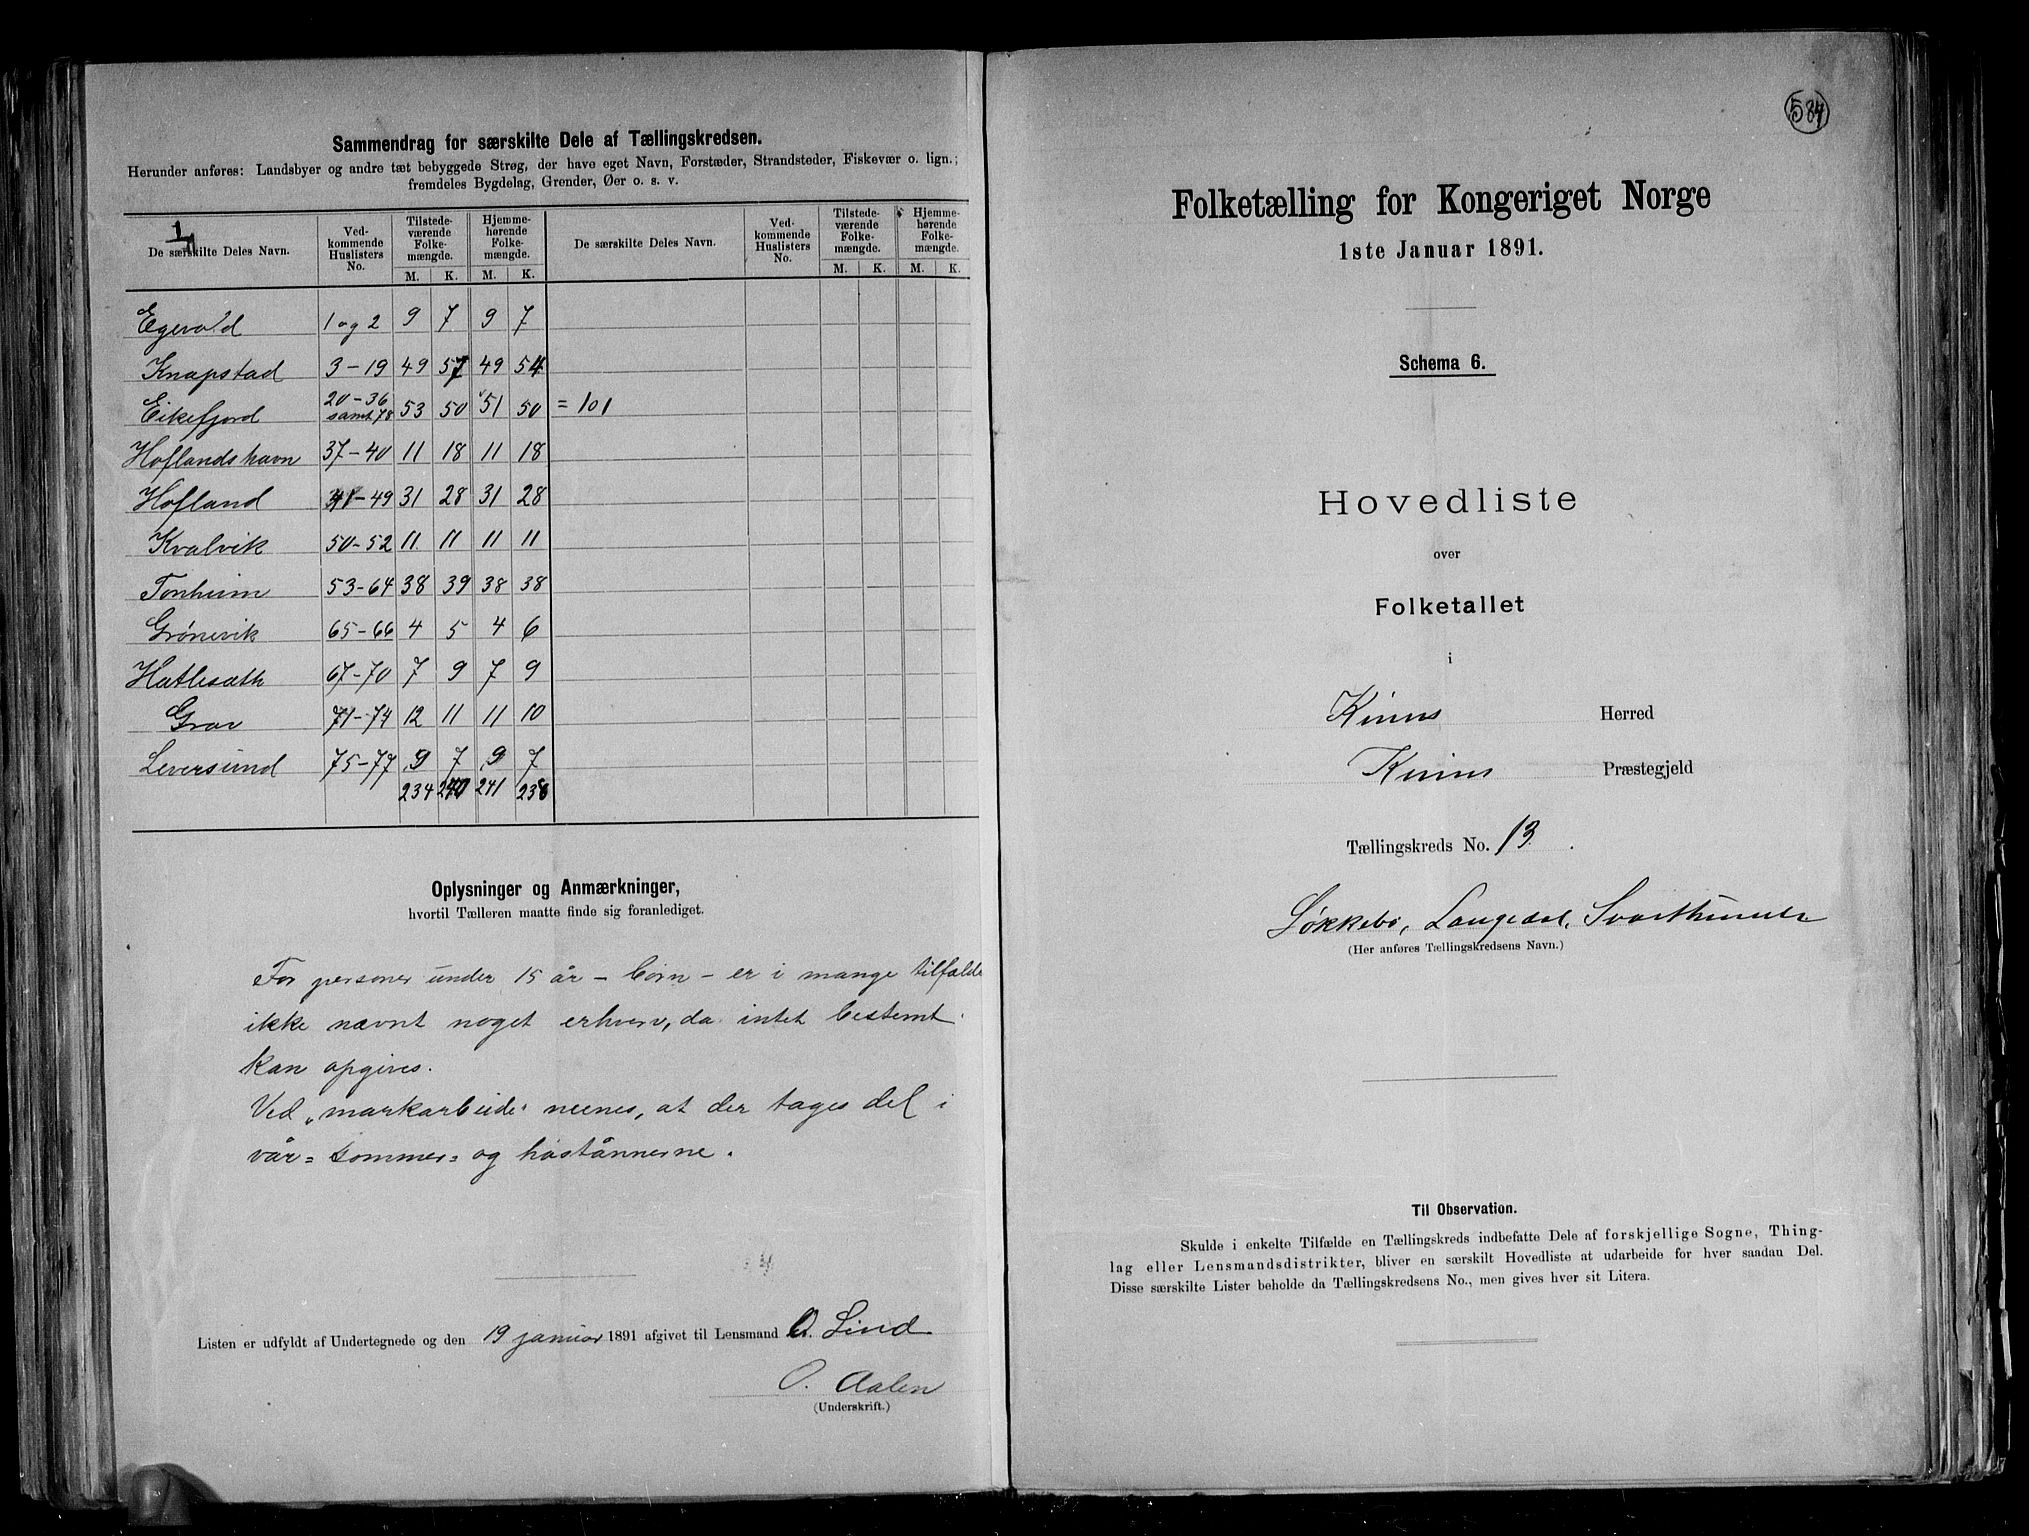 Sammendrag for særskilte Dele af Tællingskredsen.
Herunder anføres: Landsbyer og andre tæt bebyggede Strøg, der have eget Navn, Forstæder, Strandsteder, Fiskevær o. lign.;
fremdeles Bygdelag, Grender, Øer o. s. v.
De særskilte Deles Navn. Vedkommende Huslisters No. Tilstedeværende Folkemængde. M. K. Hjemmehørende Folkemængde. M. K. De særskilte Deles Navn. Vedkommende Huslisters No. Tilstedeværende Folkemængde. M. K. Hjemmehørende Folkemængde. M. K.
Egevold 1 og 2 9 7 9 7
Knapstad 3-19 49 49 54
Eikefjord 20-36 samt 78 53 50 51 50 = 101
Hoflandshavn 37-40 11 18 11 18
Hofland 41-49 31 28 31 28
Kvalvik 50-52 11 11 11 11
Tonheim 53-64 38 39 38 38
Grönevik 65-66 4 5 4 6
Hatlesæth 67-70 7 9 7 9
Grov 71-74 12 11 11 10
Leversund 75-77 9 7 9 7
234 240 241 238
Oplysninger og Anmærkninger,
hvortil Tælleren maatte finde sig foranlediget.
For personer under 15 år - börn - er i mange tilfælde
ikke nævnt noget erhverv, da intet bestemt
kan opgives.
Ved "markarbeide" menes, at der tages del i
vår= sommer= og høstånnerne.
Listen er udfyldt af Undertegnede og den 19 januar 1891 afgivet til Lensmand O. Lind
O. Aalen
(Underskrift.)
584
Folketælling for Kongeriget Norge
1ste Januar 1891.
Schema 6.
Hovedliste
over
Folketallet
i
Kinns Herred
Kinns Præstegjeld
Tællingskreds No. 13.
Løkkebø, Langedal, Svarthumle
(Her anføres Tællingskredsens Navn.)
Til Observation.
Skulde i enkelte Tilfælde en Tællingskreds indbefatte Dele af forskjellige Sogne, Thing-
lag eller Lensmandsdistrikter, bliver en særskilt Hovedliste at udarbeide for hver saadan Del.
Disse særskilte Lister beholde da Tællingskredsens No., men gives hver sit Litera.